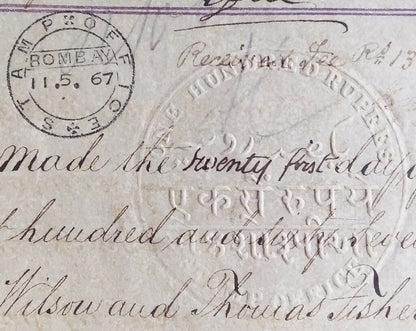 STAMP OFFICE
BOMBAY
11.5.67
Receivers Fee Rs 13
ONE HUNDRED RUPEES
एकसे रूपये
made the twenty first day
hundred and sixty seven
Wilson and Thomas Fishe